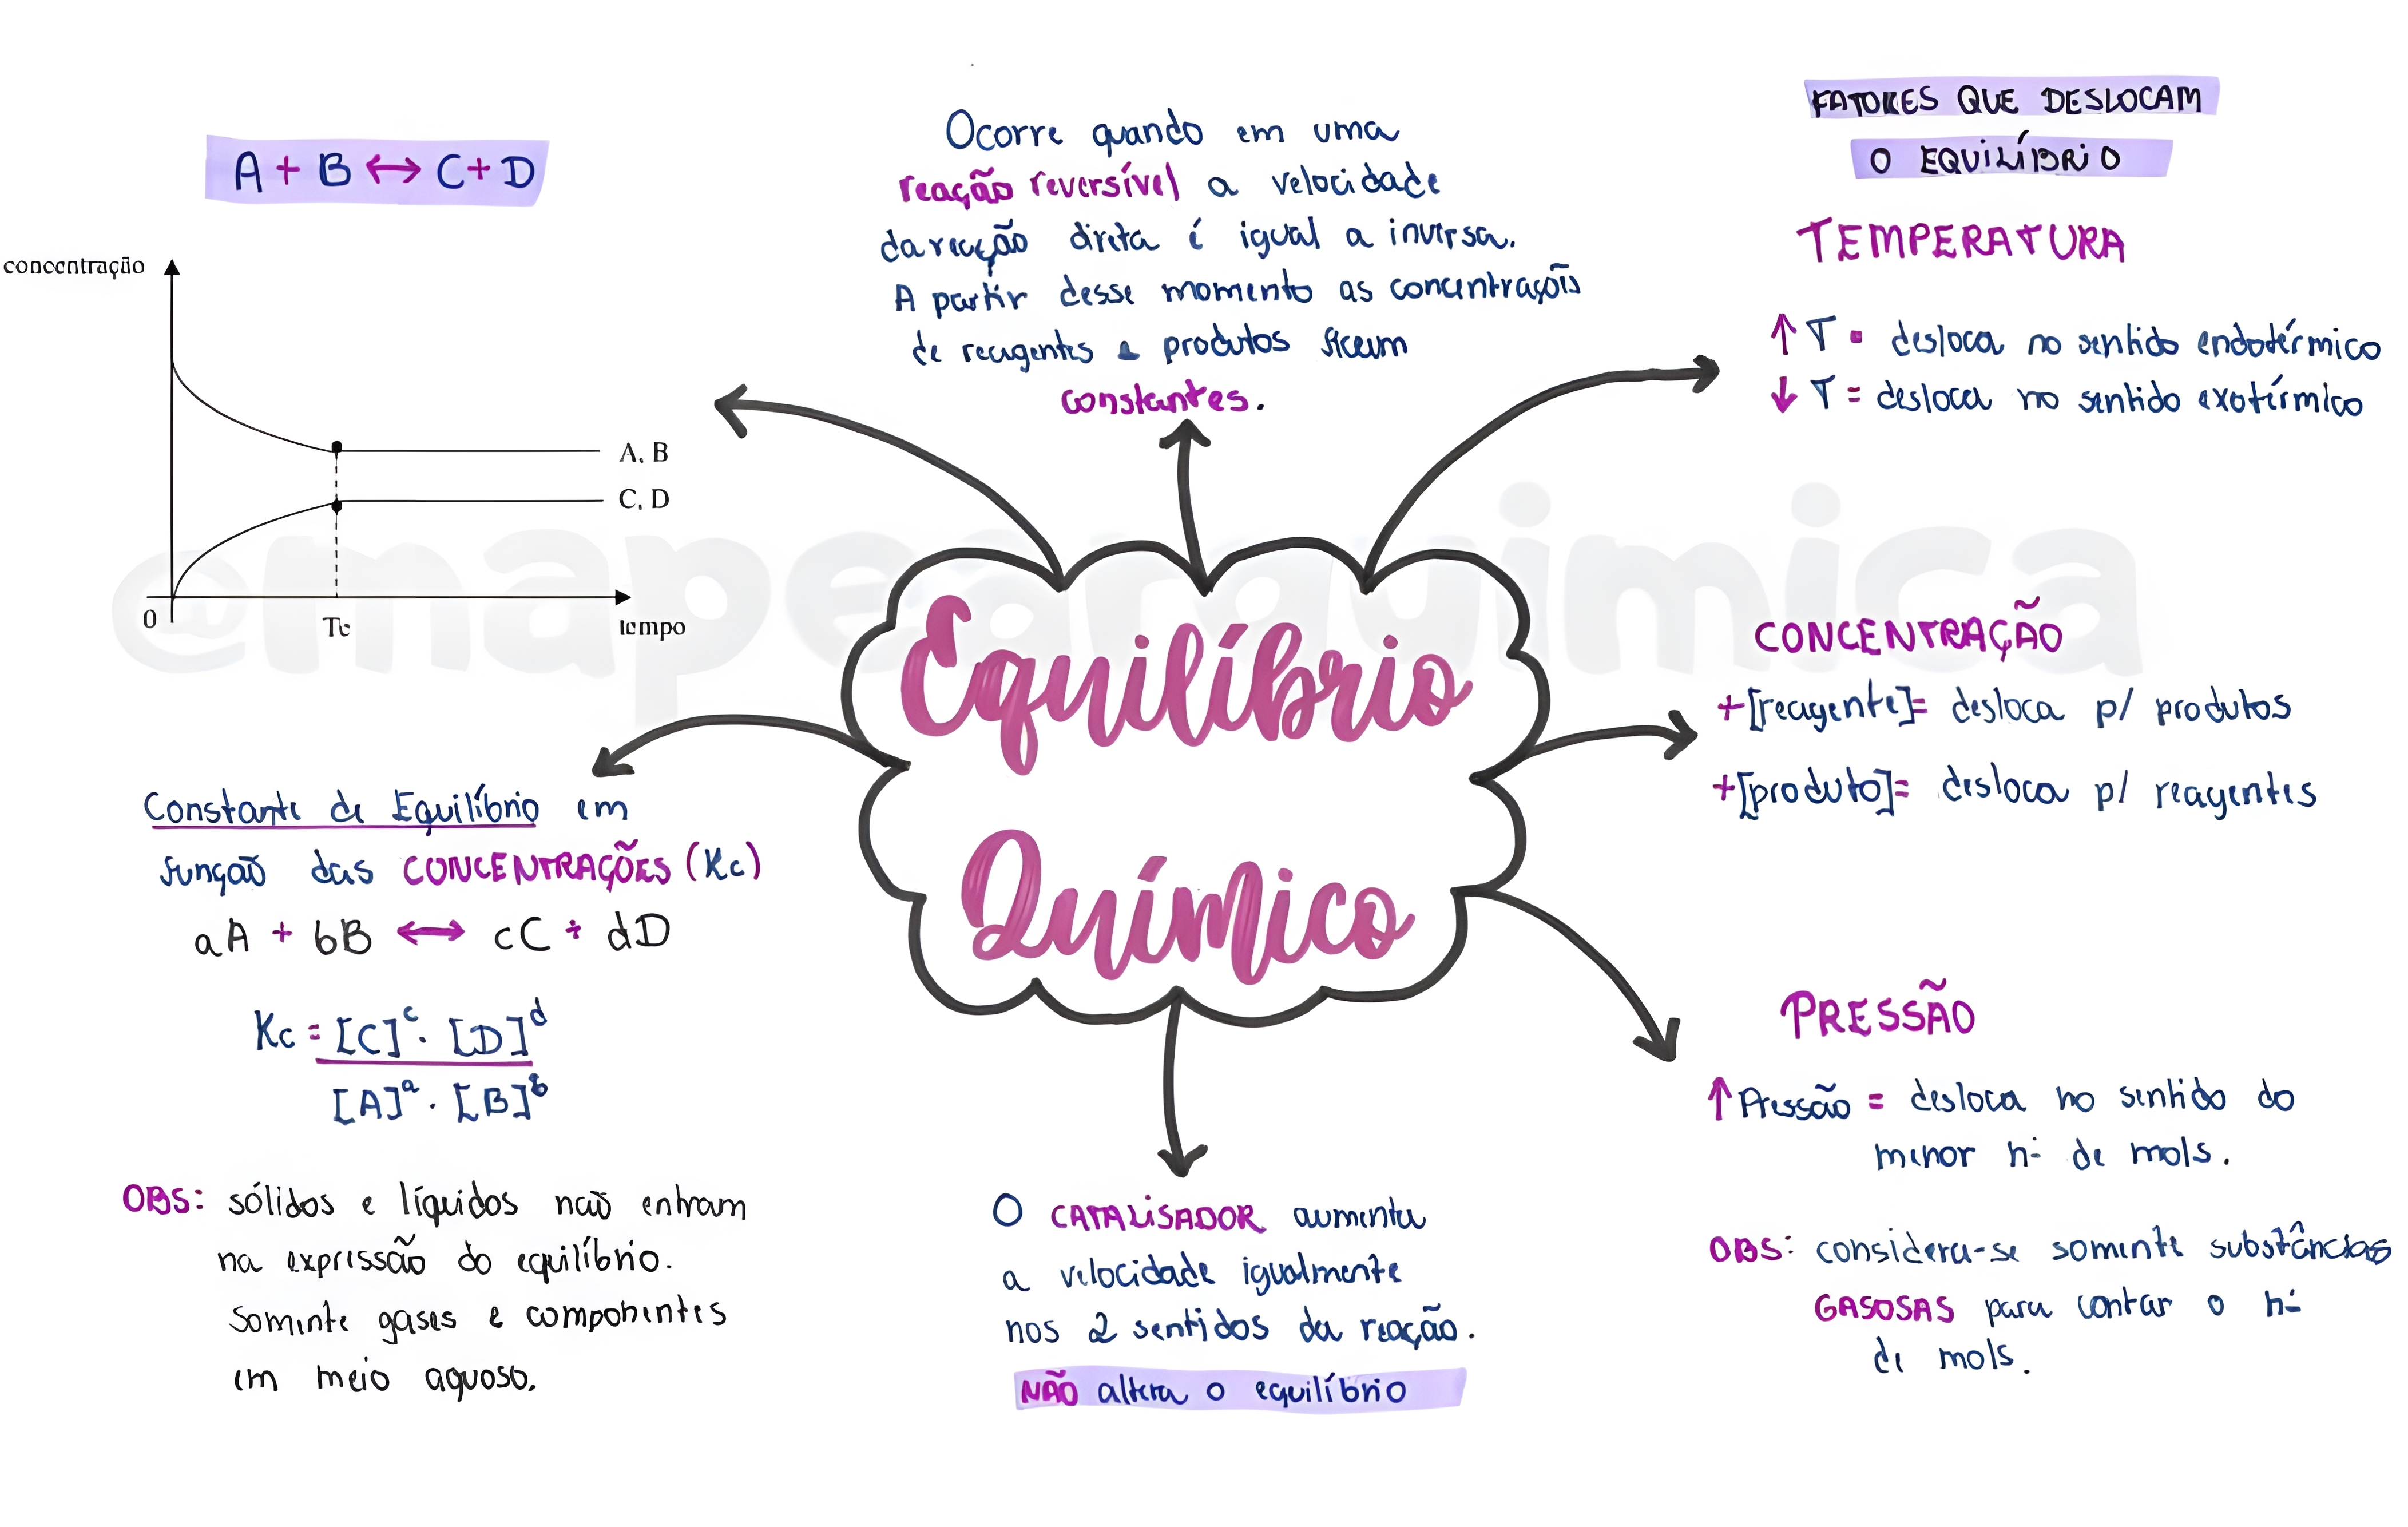 A + B ↔ C + D
concentração
A, B
C, D
0
Te
tempo
Ocorre quando em uma
reação reversível a velocidade
da reação direta é igual a inversa.
A partir desse momento as concentrações
de reagentes e produtos ficam
constantes.
FATORES QUE DESLOCAM
O EQUILÍBRIO
TEMPERATURA
↑ T = desloca no sentido endotérmico
↓ T = desloca no sentido exotérmico
@mapearquimica
Equilíbrio
Químico
CONCENTRAÇÃO
+[reagente]= desloca p/ produtos
+[produto]= desloca p/ reagentes
Constante de Equilíbrio em
função das CONCENTRAÇÕES (Kc)
aA + bB ↔ cC + dD
Kc = [C]ᶜ · [D]ᵈ
[A]ᵃ · [B]ᵇ
OBS: sólidos e líquidos não entram
na expressão do equilíbrio.
Somente gases e componentes
em meio aquoso.
O CATALISADOR aumenta
a velocidade igualmente
nos 2 sentidos da reação.
NÃO altera o equilíbrio
PRESSÃO
↑ Pressão = desloca no sentido do
menor nº de mols.
OBS: considera-se somente substâncias
GASOSAS para contar o nº
de mols.